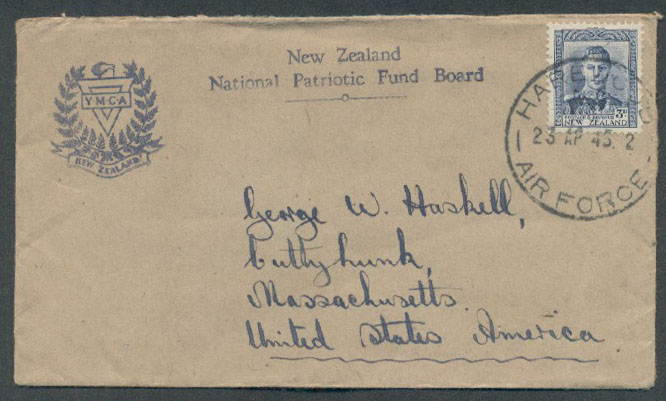 New Zealand
National Patriotic Fund Board
YMCA
NEW ZEALAND
3D
NEW ZEALAND
23 AP 45. 2
AIR FORCE
George W. Haskell,
Cuttyhunk,
Massachusetts
United States America